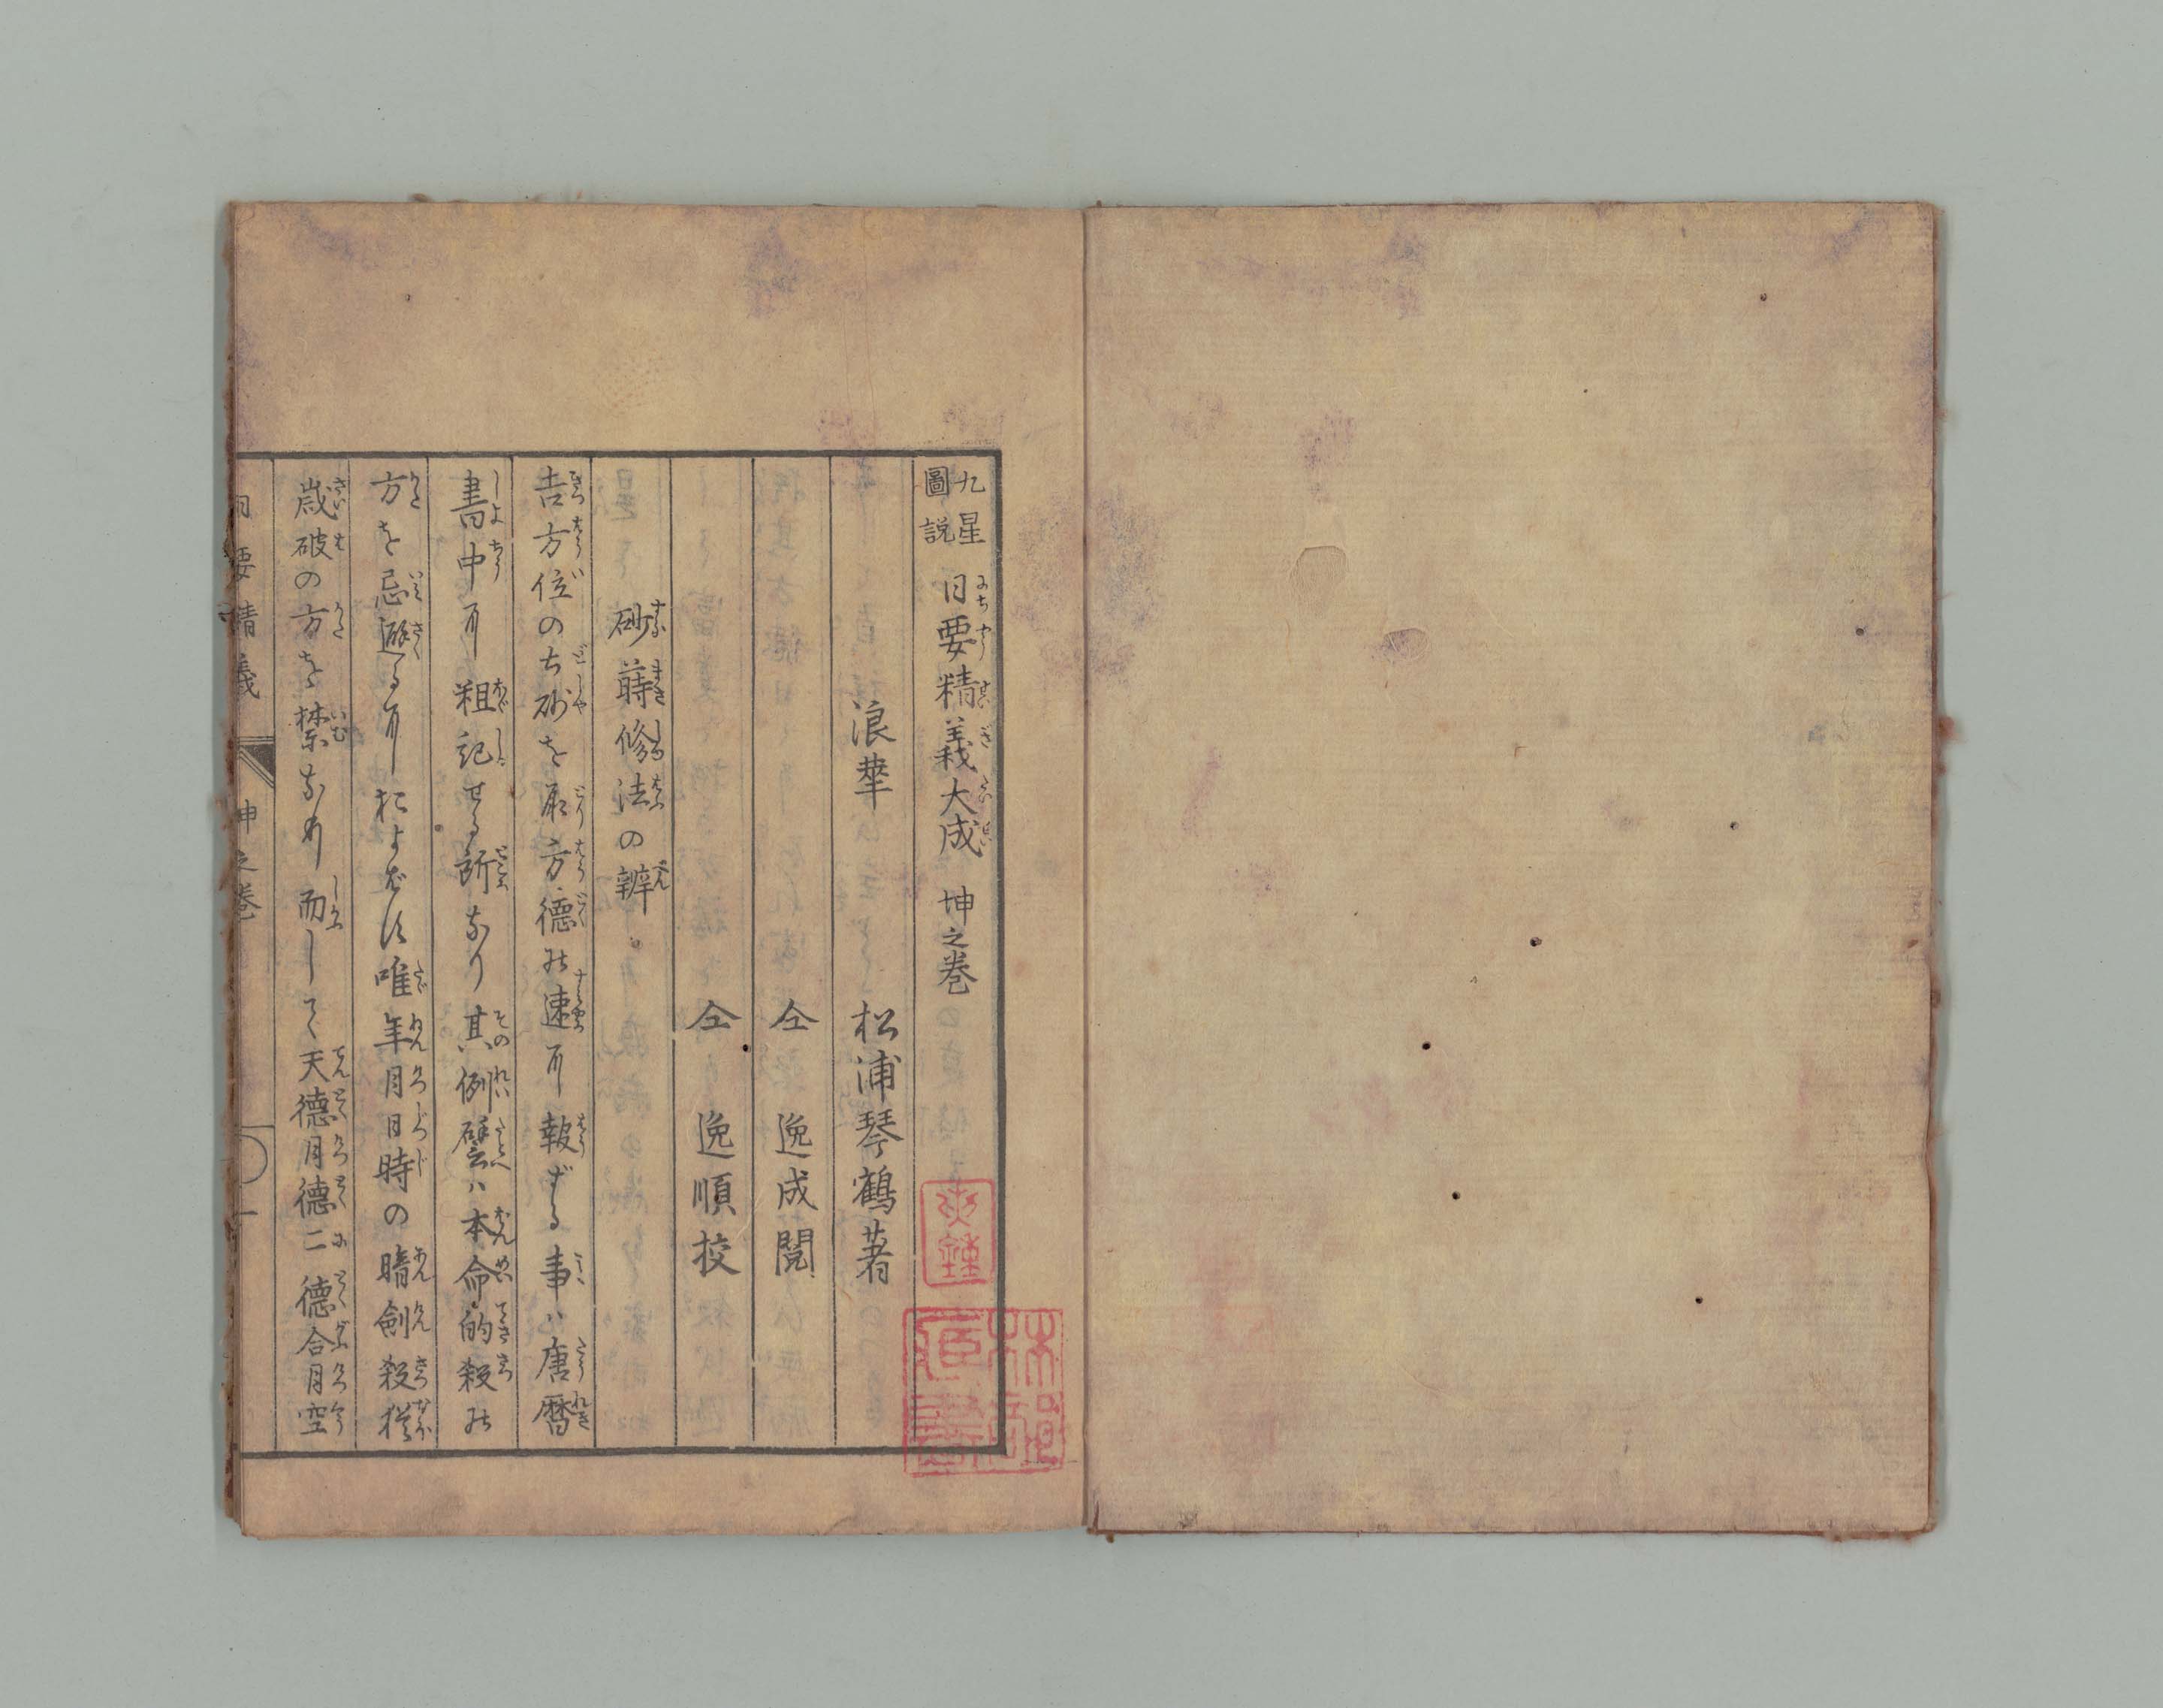 九星圖説 日要精義大成 坤之巻
浪華 松浦琴鶴著
仝 逸成閲
仝 逸順校
砂蒔修法の辨
吉方位の土砂を取方德の速に報ずる事ハ唐暦
書中に粗記せる所なり其例譬ハ本命的殺の
方を忌避るにおよばず唯年月日時の暗劍殺掟
歳破の方を禁なり而して天德月德二德合月空
日要精義 坤之巻 一